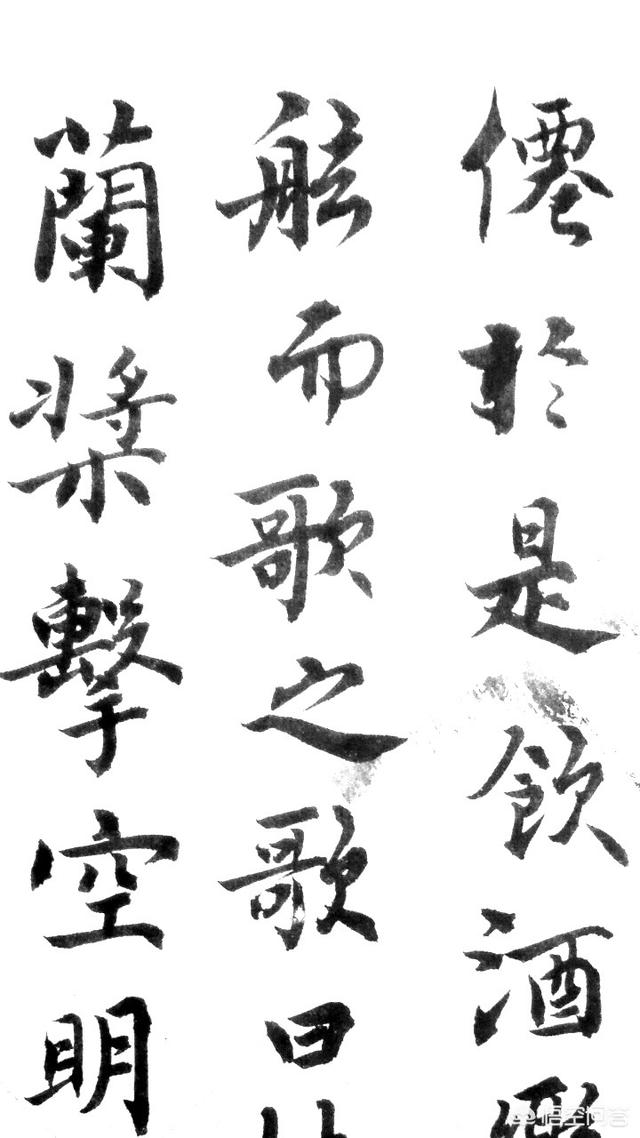 僊於是飲酒
舷而歌之歌曰
蘭槳擊空明
悟空问答